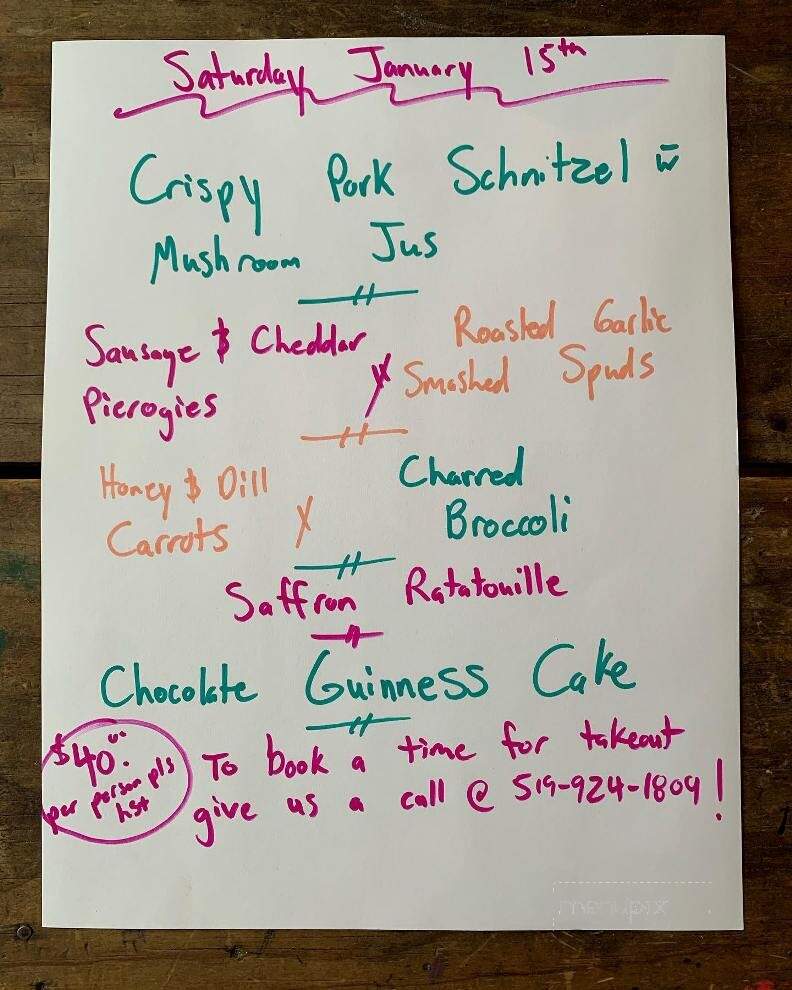 Saturday January 15th
Crispy Pork Schnitzel w̄
Mushroom Jus
Sausage & Cheddar
Pierogies
Roasted Garlic
Smashed Spuds
Honey & Dill
Carrots
Charred
Broccoli
Saffron Ratatouille
Chocolate Guinness Cake
$40.
per person pls
hst
To book a time for takeout
give us a call @ 519-924-1809!
menupix